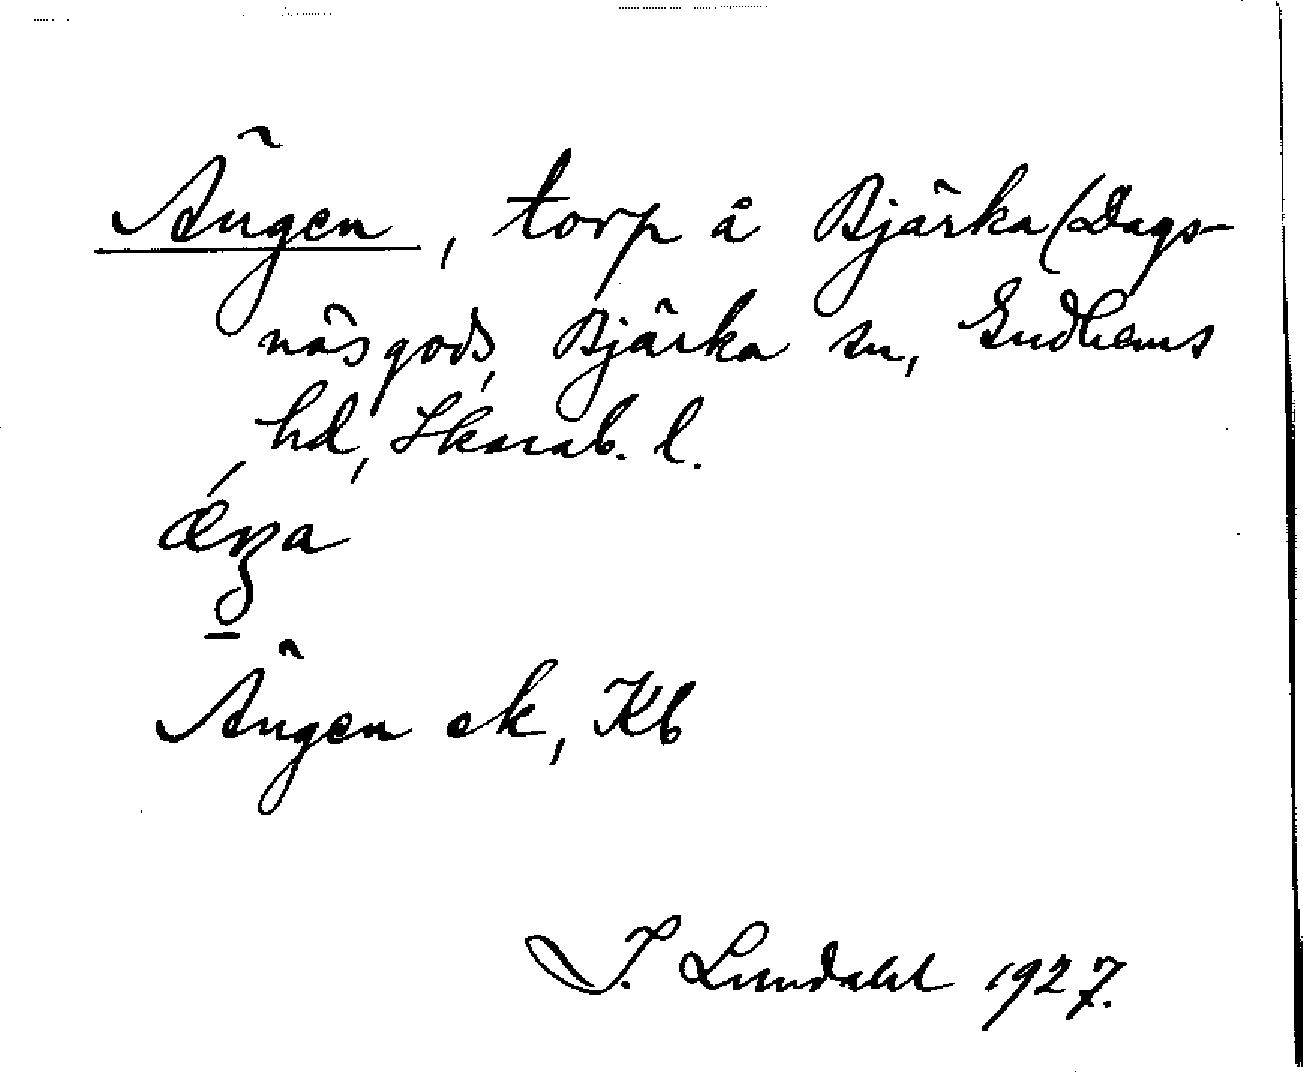 Ängen, torp å Bjärka (Dags-
näs gods, Bjärka sn, Gudhems
hd, Skarab. l.
Ängen ek, Kb
I. Lundahl 1927.